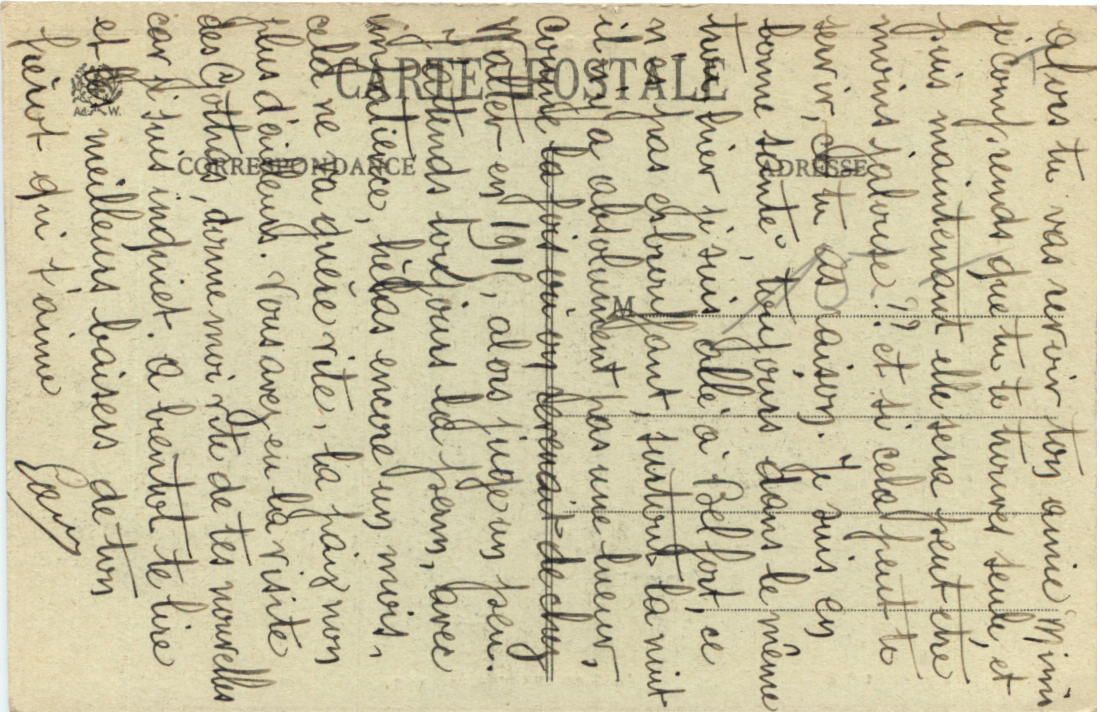 CARTE POSTALE
CORRESPONDANCE
ADRESSE
M
A. W.
Alors tu vas revoir ton amie "Mimi
je comprends que tu te trouves seule, et
puis maintenant elle sera peut être
moins jalouse ?? et si cela peut te
servir, tu as raison. Je suis en
bonne santé toujours dans le même
trou, hier je suis allé à Belfort, ce
n'est pas ébouriffant, surtout la nuit
il n'y a absolument pas une lueur,
comme la fois où on revenait de chez
Walter en 191 , alors juge un peu.
J'attends toujours la perm, avec
impatience, hélas encore un mois,
cela ne va guère vite, la paix non
plus d'ailleurs. Vous avez eu la visite
des Gothas, donne moi vite de tes nouvelles
car je suis inquiet. A bientôt te lire
et les meilleurs baisers de ton
piérot qui t'aime